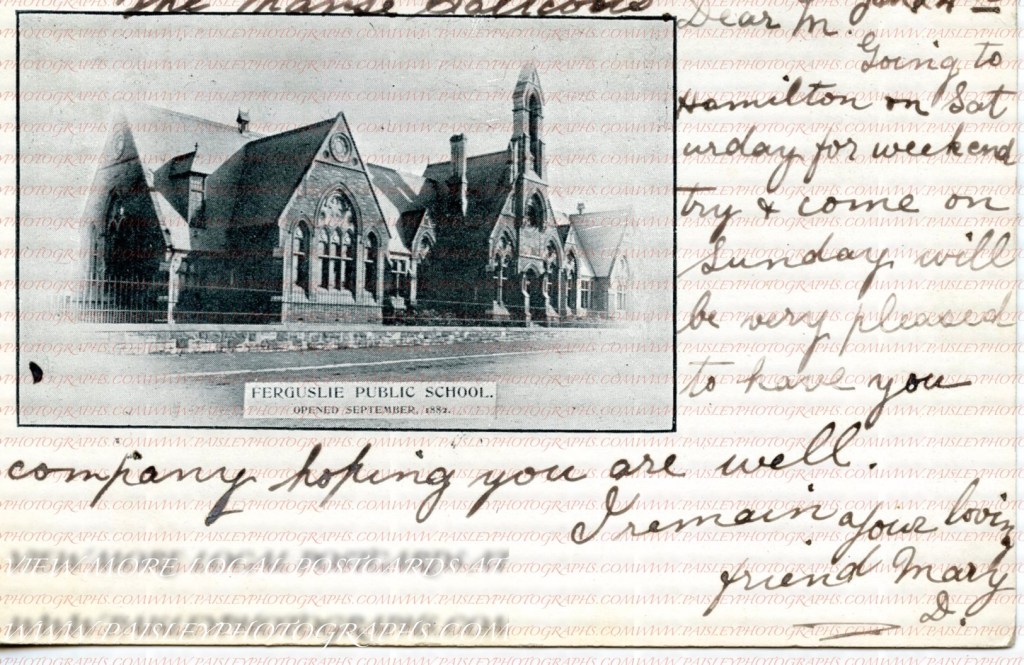 The Manse
Dear M.
Going to
Hamilton on Sat
urday for weekend
try & come on
Sunday will
be very pleased
to have you
company hoping you are well.
I remain your loving
friend Mary
D.
FERGUSLIE PUBLIC SCHOOL.
OPENED SEPTEMBER, 1882.
VIEW MORE LOCAL POSTCARDS AT
WWW.PAISLEYPHOTOGRAPHS.COM